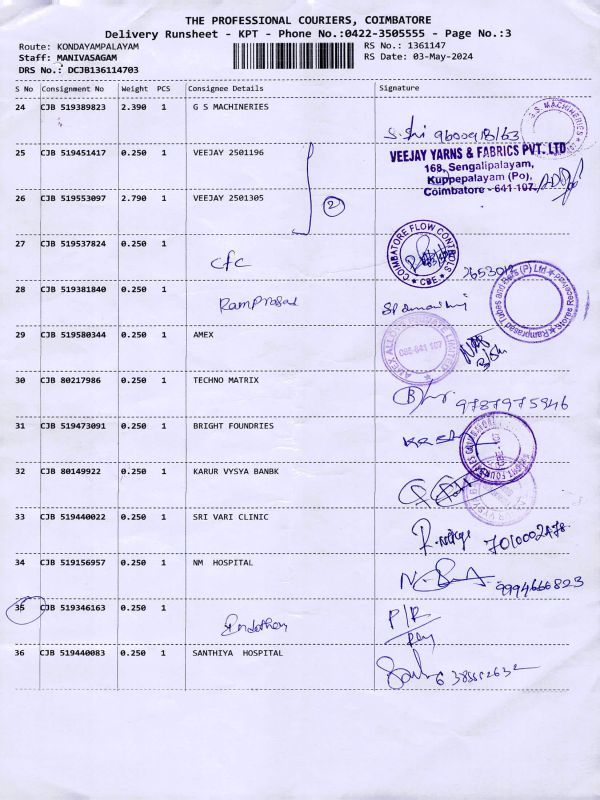 THE PROFESSIONAL COURIERS, COIMBATORE
Delivery Runsheet - KPT - Phone No.:0422-3505555 - Page No.:3
Route: KONDAYAMPALAYAM
RS No.: 1361147
Staff: MANIVASAGAM
RS Date: 03-May-2024
DRS No.: DCJB136114703
S No Consignment No Weight PCS Consignee Details Signature
24 CJB 519389823 2.390 1 G S MACHINERIES
G.S. MACHINERIES
25 CJB 519451417 0.250 1 VEEJAY 2501196
VEEJAY YARNS & FABRICS PVT. LTD
168, Sengalipalayam,
Kuppepalayam (Po),
Coimbatore - 641 107
26 CJB 519553097 2.790 1 VEEJAY 2501305
2
27 CJB 519537824 0.250 1
cfc
COIMBATORE FLOW CONTROLS
CBE
28 CJB 519381840 0.250 1
Ramprasad
29 CJB 519580344 0.250 1 AMEX
30 CJB 80217986 0.250 1 TECHNO MATRIX
9787975946
31 CJB 519473091 0.250 1 BRIGHT FOUNDRIES
32 CJB 80149922 0.250 1 KARUR VYSYA BANBK
33 CJB 519440022 0.250 1 SRI VARI CLINIC
7010002478
34 CJB 519156957 0.250 1 NM HOSPITAL
9994666823
35 CJB 519346163 0.250 1
P/R
36 CJB 519440083 0.250 1 SANTHIYA HOSPITAL